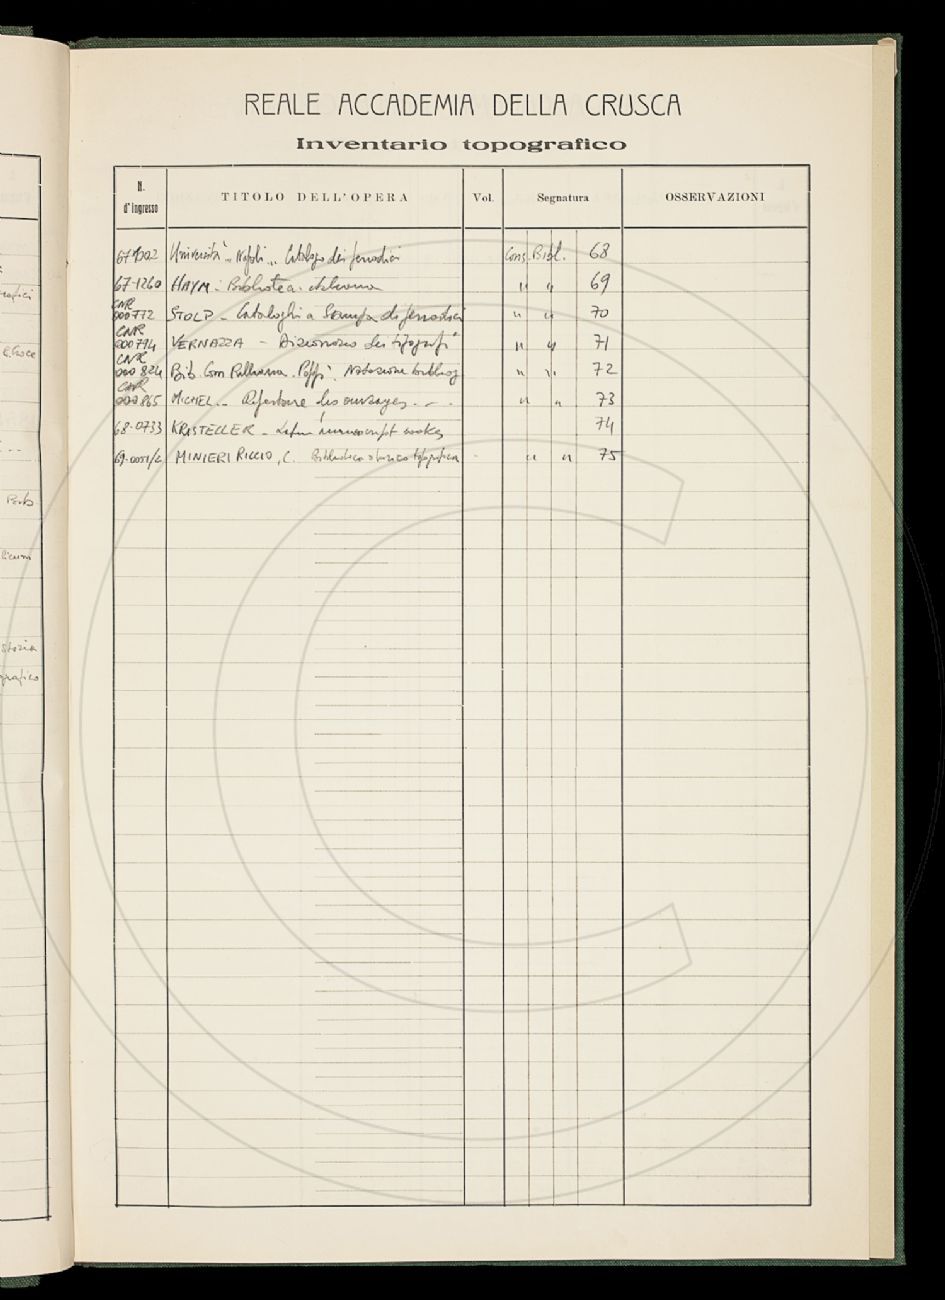 REALE ACCADEMIA DELLA CRUSCA
Inventario topografico
N. d'Ingresso TITOLO DELL'OPERA Vol. Segnatura OSSERVAZIONI
Università - Napoli - Catalogo dei periodici Cons. Bibl. 68
67-1260 HAYM - Biblioteca italiana " " 69
CNR
000772 STOLP - Cataloghi a Stampa di periodici " " 70
CNR
000794 VERNAZZA - Dizionario dei tipografi " " 71
CNR
000824 Bib. Com. Poppi. " " 72
CNR
000865 MICHEL - Répertoire des ouvrages - - " " 73
68-0733 KRISTELLER - Latin manuscript books 74
MINIERI RICCIO, C. Biblioteca storico topografica " " 75
rafici
Croce
Porto
Storia
grafico